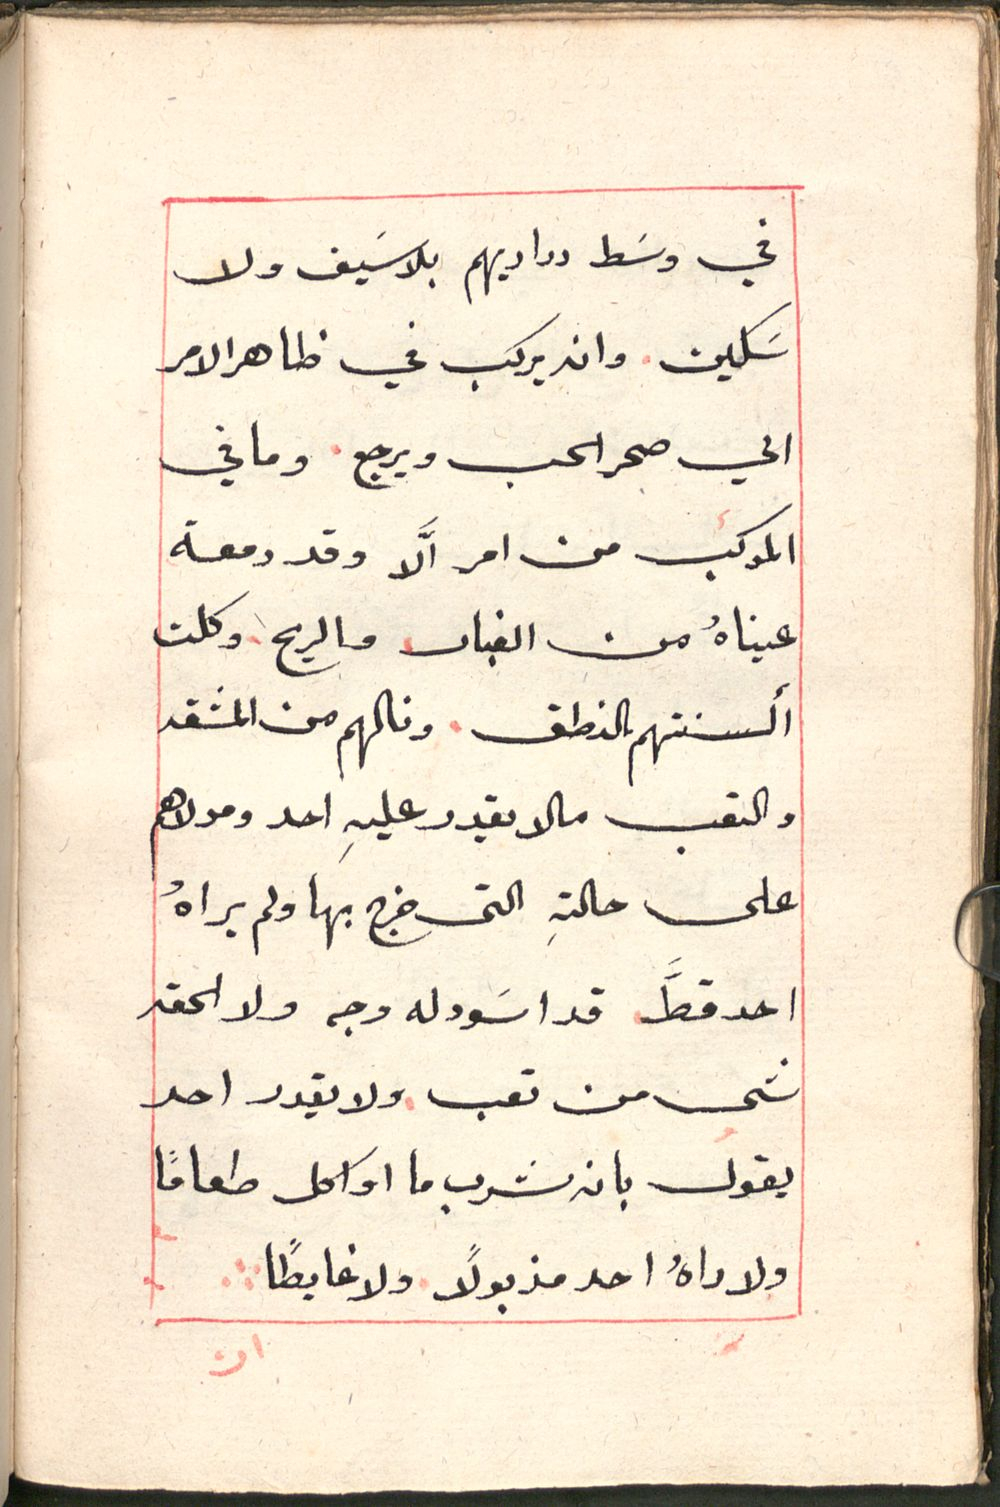 في وسَط دراديهم بلاسَيف ولا
سَكلين. وانه يركب في ظاهر الامر
الي صحرا لجب ويرجع. وما في
الموكب من امر الَّا وقد دمعة
عيناهُ من الغبار والريح. وكلت
ألسنتهم بالنطق. ونالهم من المشقه
والتعب مالا يقدر عليهِ احد ومولاهم
على حالتهِ التى خرج بها ولم يراهُ
احد قطَّ. قد اسَود له وجه ولا لحقه
شى من تعب. ولا يقدر احد
يقول بانه شرب ما او اكل طعامًا
ولا راهُ احد مذبولًا. ولا غايطًا
ان